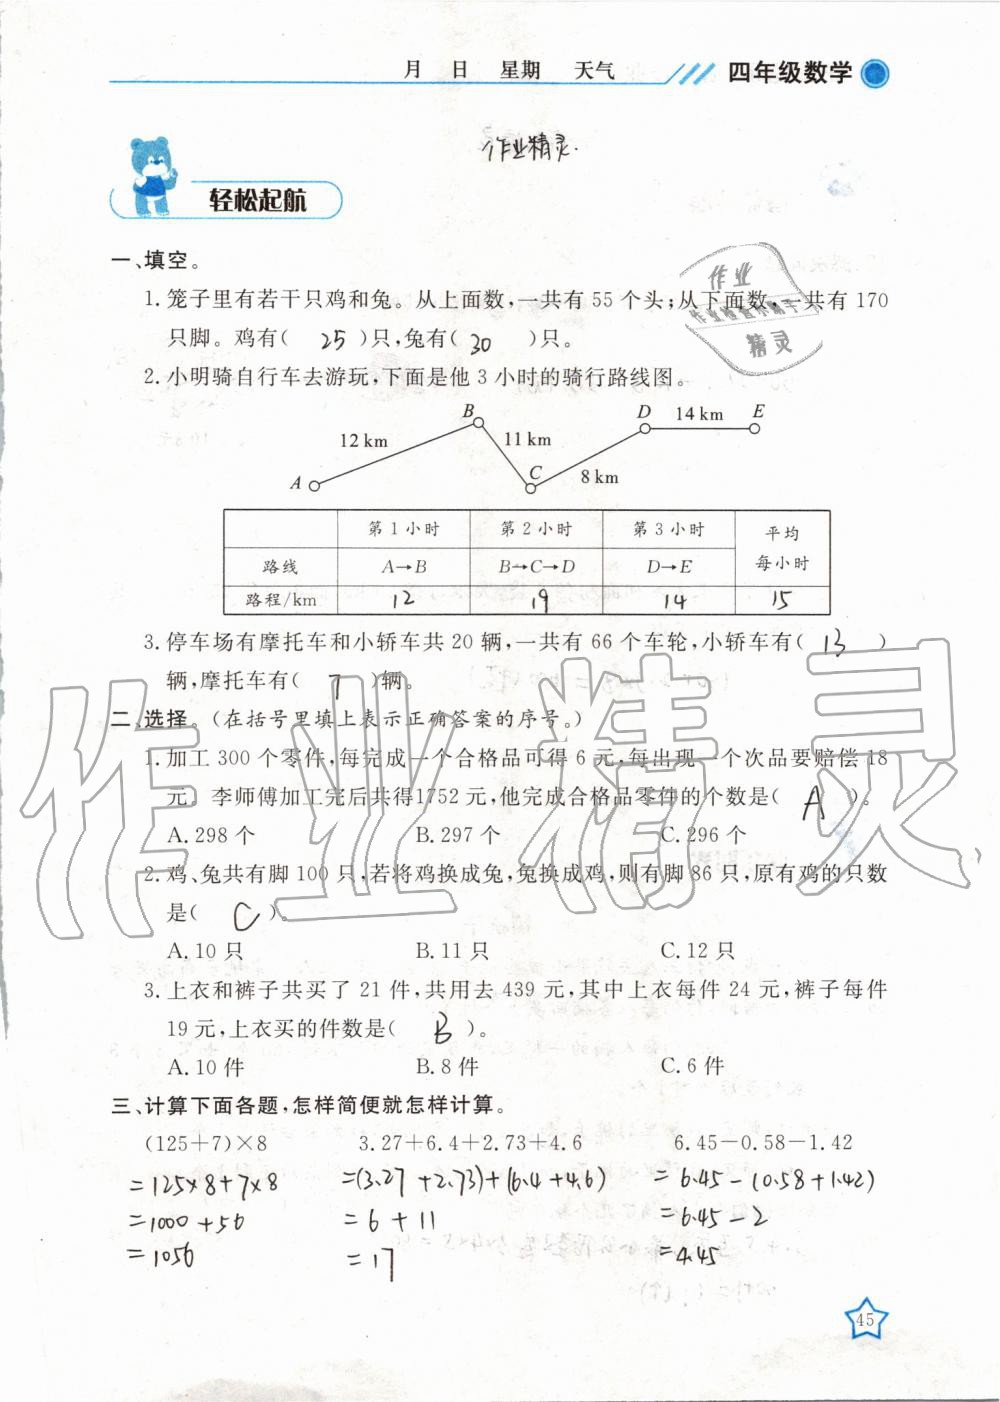 月 日 星期 天气 四年级数学
作业精灵.
轻松起航
一、填空。
1. 笼子里有若干只鸡和兔。从上面数,一共有 55 个头;从下面数,一共有 170
只脚。鸡有( 25 )只,兔有( 30 )只。
作业
精灵
2. 小明骑自行车去游玩,下面是他 3 小时的骑行路线图。
A 12 km B 11 km C 8 km D 14 km E
第 1 小时 第 2 小时 第 3 小时 平均每小时
路线 A→B B→C→D D→E
路程/km 12 19 14 15
3. 停车场有摩托车和小轿车共 20 辆,一共有 66 个车轮,小轿车有( 13 )
辆,摩托车有( 7 )辆。
二、选择。(在括号里填上表示正确答案的序号。)
1. 加工 300 个零件,每完成一个合格品可得 6 元,每出现一个次品要赔偿 18
元。李师傅加工完后共得1752 元,他完成合格品零件的个数是( A )。
A. 298 个 B. 297 个 C. 296 个
2. 鸡、兔共有脚 100 只,若将鸡换成兔,兔换成鸡,则有脚 86 只,原有鸡的只数
是( C )。
A. 10 只 B. 11 只 C. 12 只
3. 上衣和裤子共买了 21 件,共用去 439 元,其中上衣每件 24 元,裤子每件
19 元,上衣买的件数是( B )。
A. 10 件 B. 8 件 C. 6 件
三、计算下面各题,怎样简便就怎样计算。
(125+7)×8 3.27+6.4+2.73+4.6 6.45-0.58-1.42
=125×8+7×8 =(3.27+2.73)+(6.4+4.6) =6.45-(0.58+1.42)
=1000+56 =6+11 =6.45-2
=1056 =17 =4.45
45
作业精灵